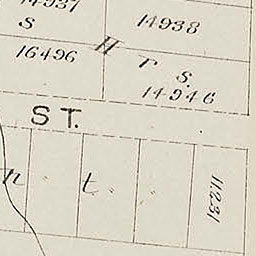 14937
S
14938
16496
H r s.
14946
ST.
n t
11231